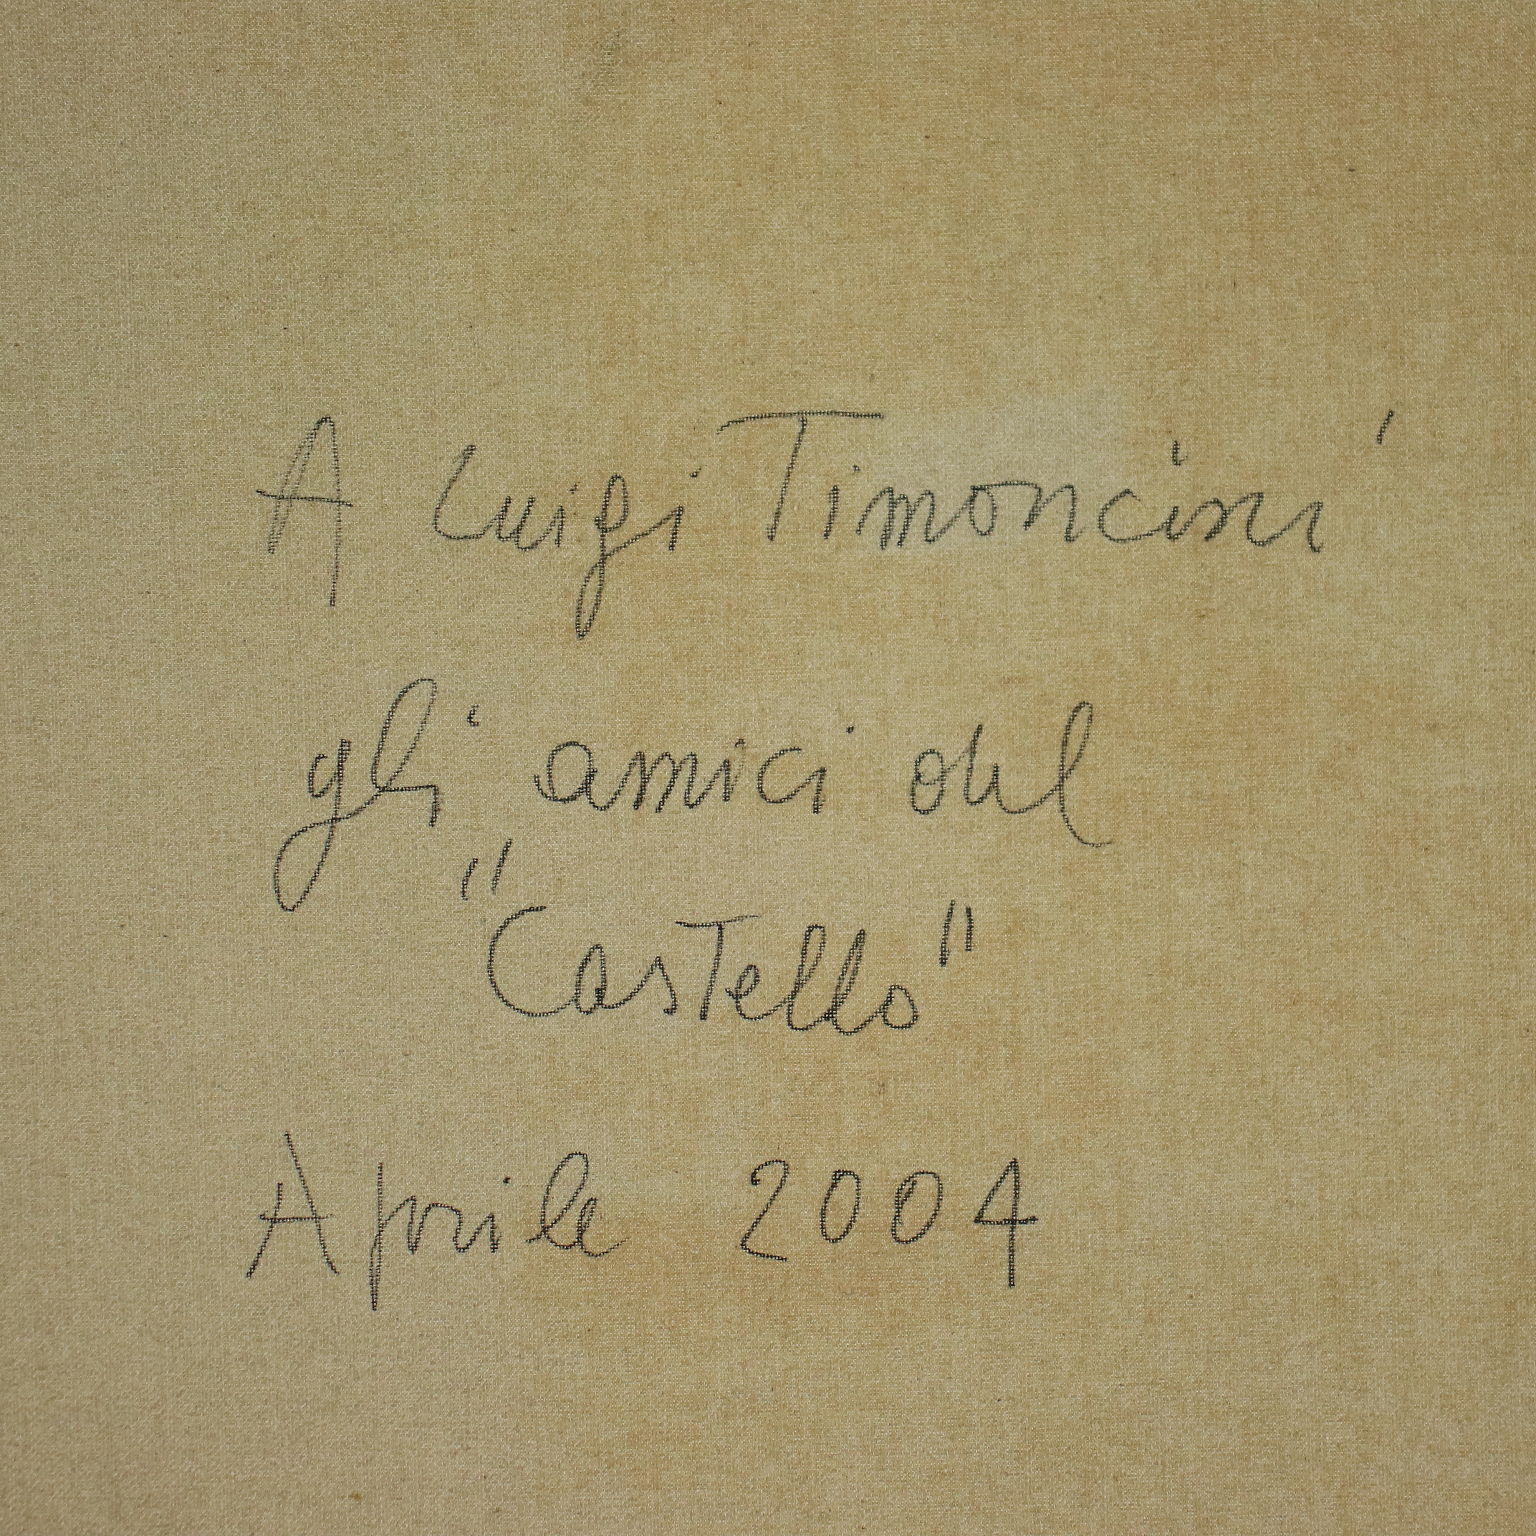 A Luigi Timoncini
gli amici del
"Castello"
Aprile 2004